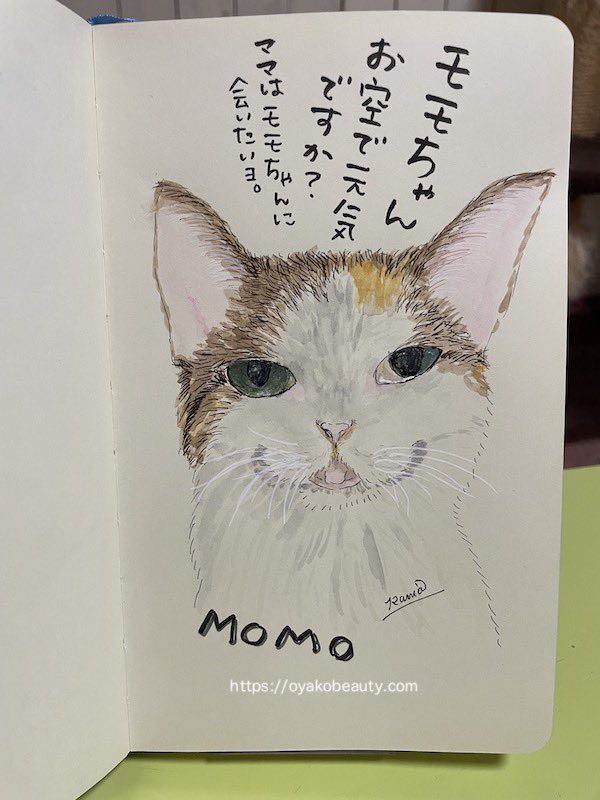 モモちゃん
お空で元気
ですか?
ママはモモちゃんに
会いたいヨ。
Kamia
MOMO
https://oyakobeauty.com